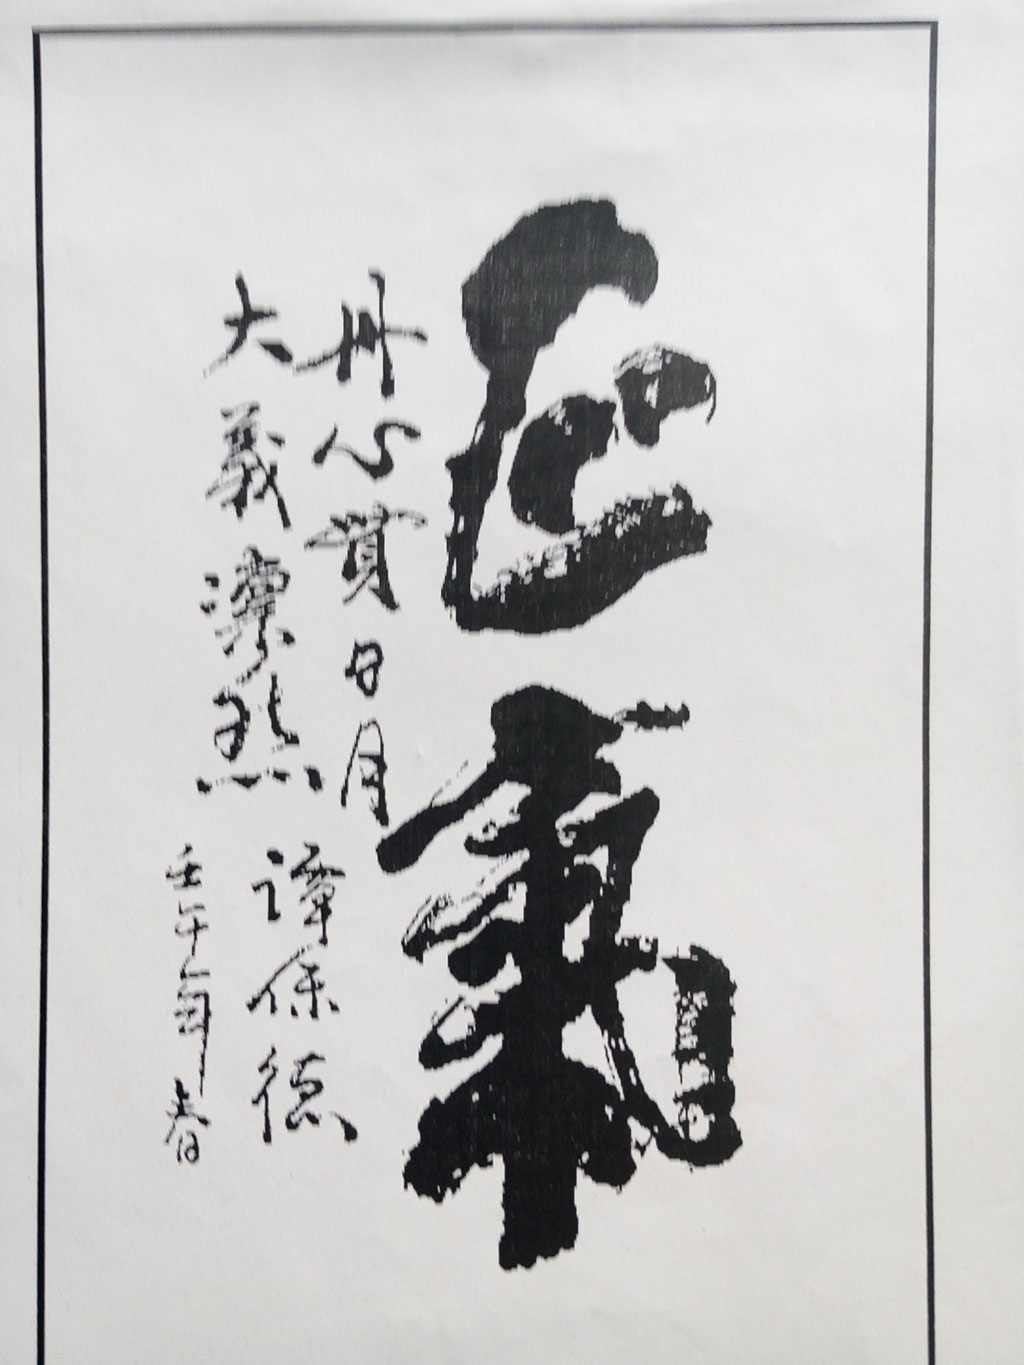 正氣
丹心貫日月
大義凜然
譚保德
壬午年春